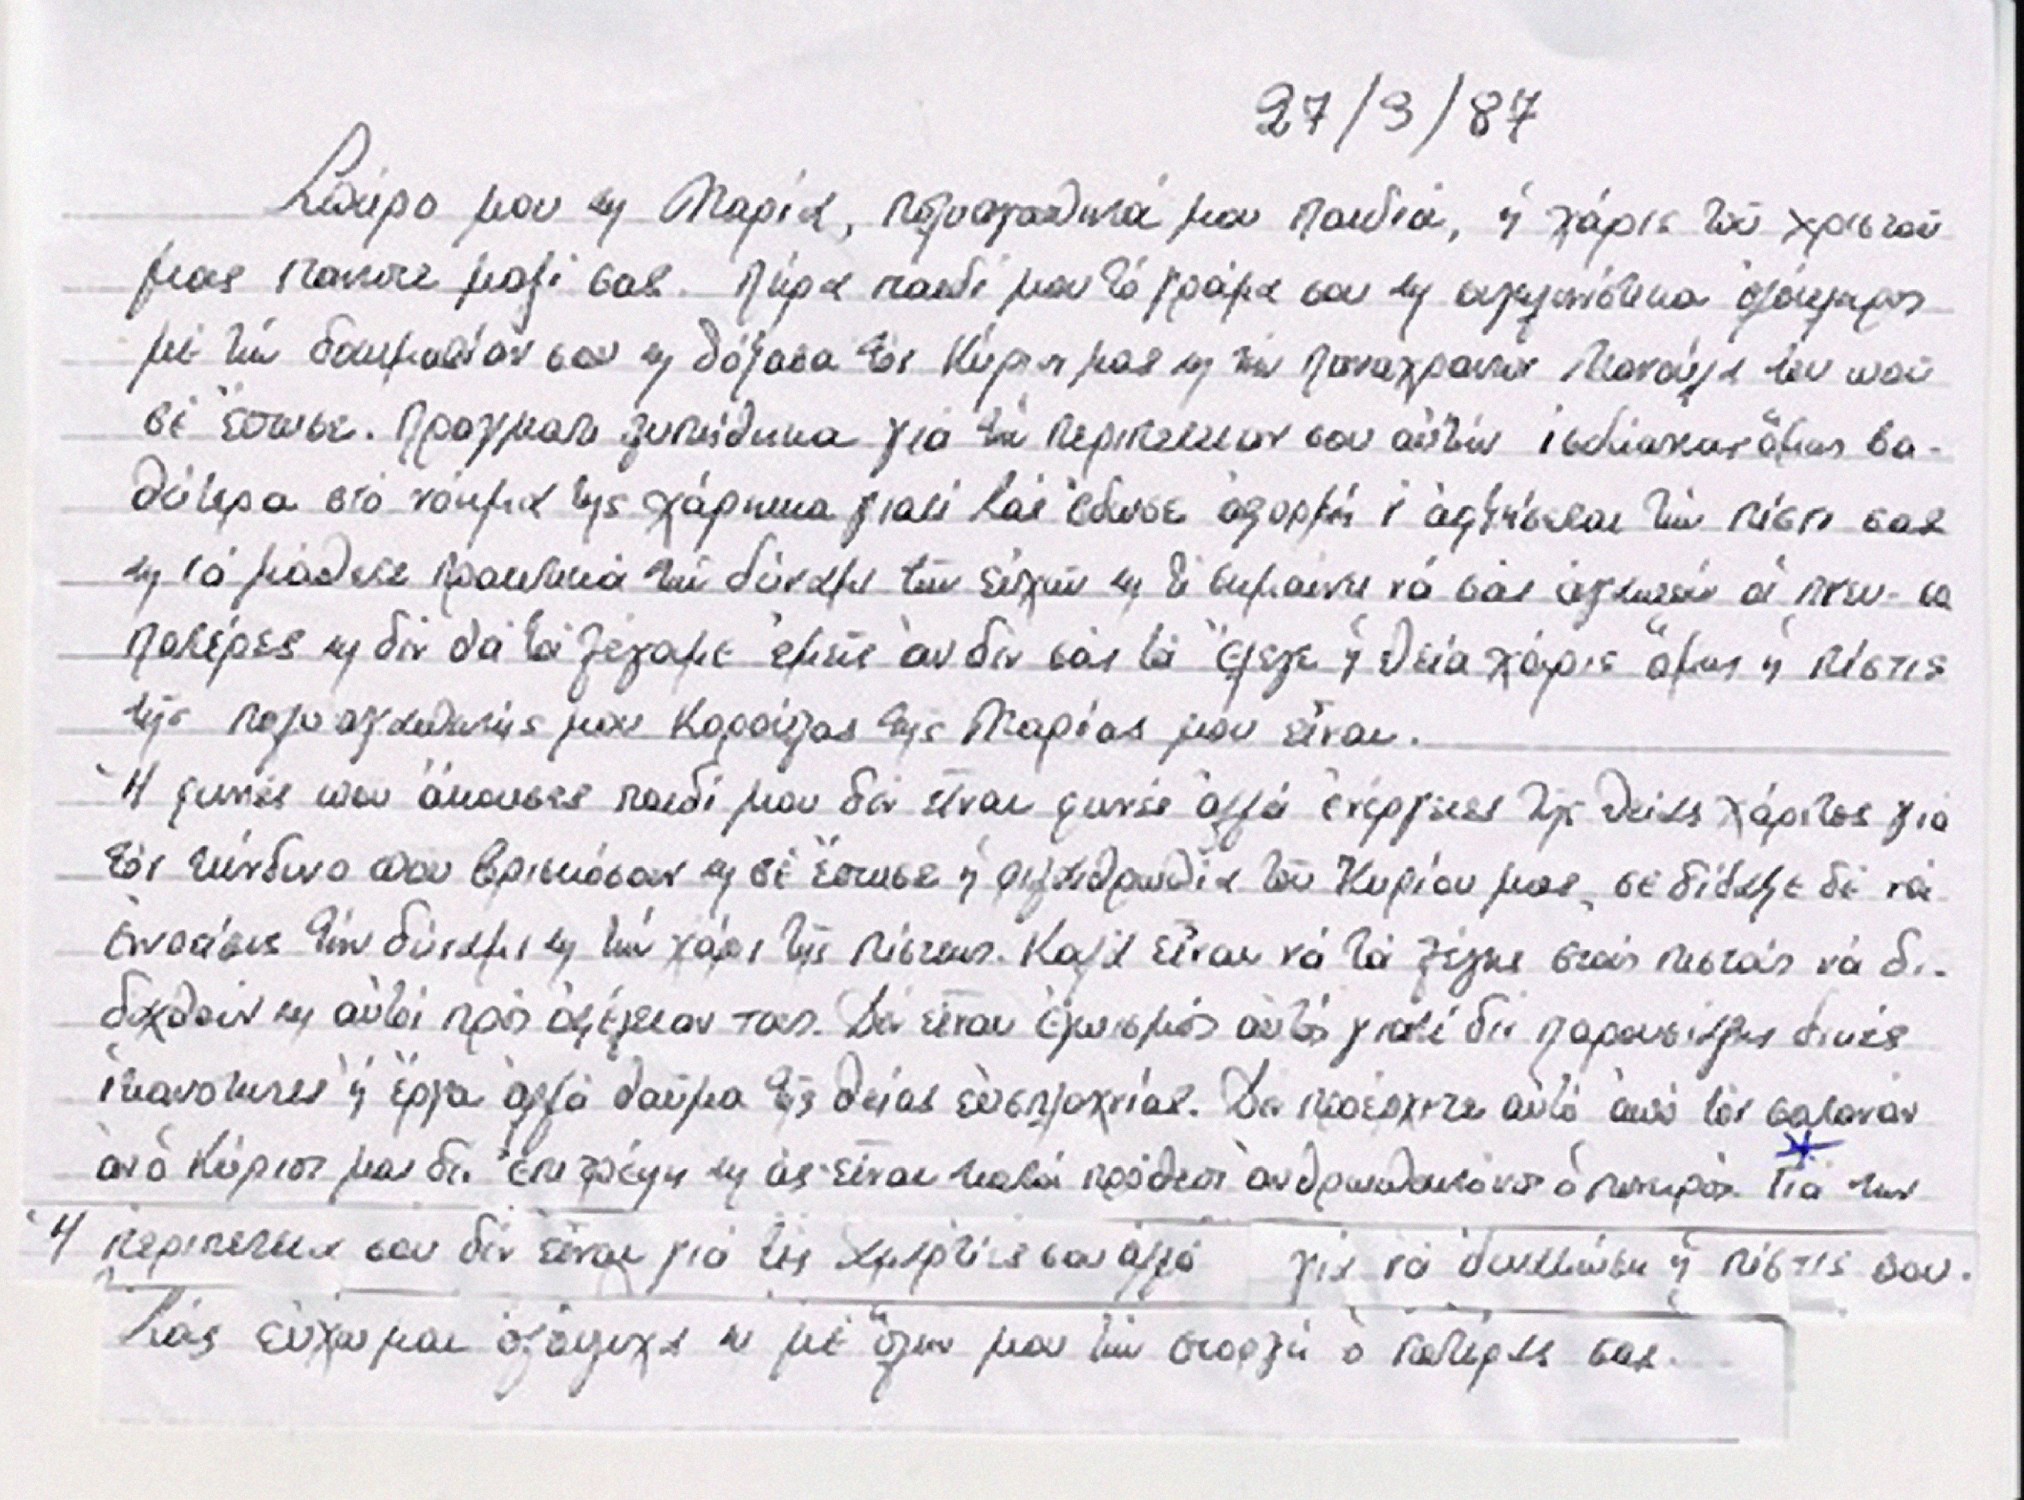 27/3/87
Σταύρο μου ϗ Μαρία, πολυαγαπητά μου παιδιά, ἡ χάρις τοῦ χριστοῦ
μας πάντοτε μαζί σας. Πῆρα παιδί μου τό γράμα σου ϗ συγκλονίστηκα ὁλόκληρος
μέ τήν δοκιμασίαν σου ϗ δόξασα τόν Κύριον μας ϗ τήν Παναχραντον Μανούλα του πού
σέ ἔσωσε. Πραγματι λυπήθηκα γιά τήν περιπετειαν σου αὐτήν ὅμως βα-
θύτερα στό νόημα της χάρηκα γιατί Σας ἔδωσε ἀφορμή ν' αὐξήσεται τήν πίστι σας
ϗ νά μάθετε πρακτικά τήν δύναμι τῶν εὐχῶν ϗ τί σημαίνη νά σάς ἀγαποῦν οἱ πνευ-
πατέρες ϗ δέν θά τά λέγαμε ἐμεῖς ἀν δέν σάς τά ἔλεγε ἡ θεία χάρις ὅμως ἡ πίστις
τῆς πολυαγαπητης μου Κορούλας τῆς Μαρίας μου εἶναι.
Ἡ φωνές που ἄκουσες παιδί μου δέν εἶναι φωνές ἀλλά ἐνέργειες τῆς θείας χάριτος γιά
τόν κίνδυνο που βρισκόσαν ϗ σέ ἔσωσε ἡ φιλανθρωπία τοῦ Κυρίου μας, σε δίδαξε δέ νά
ἐννοήσεις τήν δύναμι ϗ τήν χάρι τῆς πίστεως. Καλά εἶναι νά τά λέγης στούς πιστούς νά δι-
δαχθοῦν ϗ αὐτοί πρός ὀφέλειαν τους. Δέν εἶναι ἐγωισμός αὐτός γιατί δέν παρουσιάζης δικές
ἱκανοτητες ἡ ἔργα ἀλλά θαῦμα τῆς θείας εὐσπλαχνίας. Δεν προέρχετε αὐτό ἀπό τόν σατανάν
ἀν ὁ Κύριος μας δέν ἐπιτρέψη ϗ ἀς εἶναι κατά πρόθεσι ἀνθρωποκτόνος ὁ πονηρός. Γιά την
Ἡ περιπετεια σου δέν εἶναι γιά τίς ἁμαρτίες σου ἀλλά γιά νά δυναμώση ἡ πίστις σου.
Σάς εὐχωμαι ὁλόψυχα ϗ μέ ὅλην μου τήν στοργή ὁ πατέρας σας.